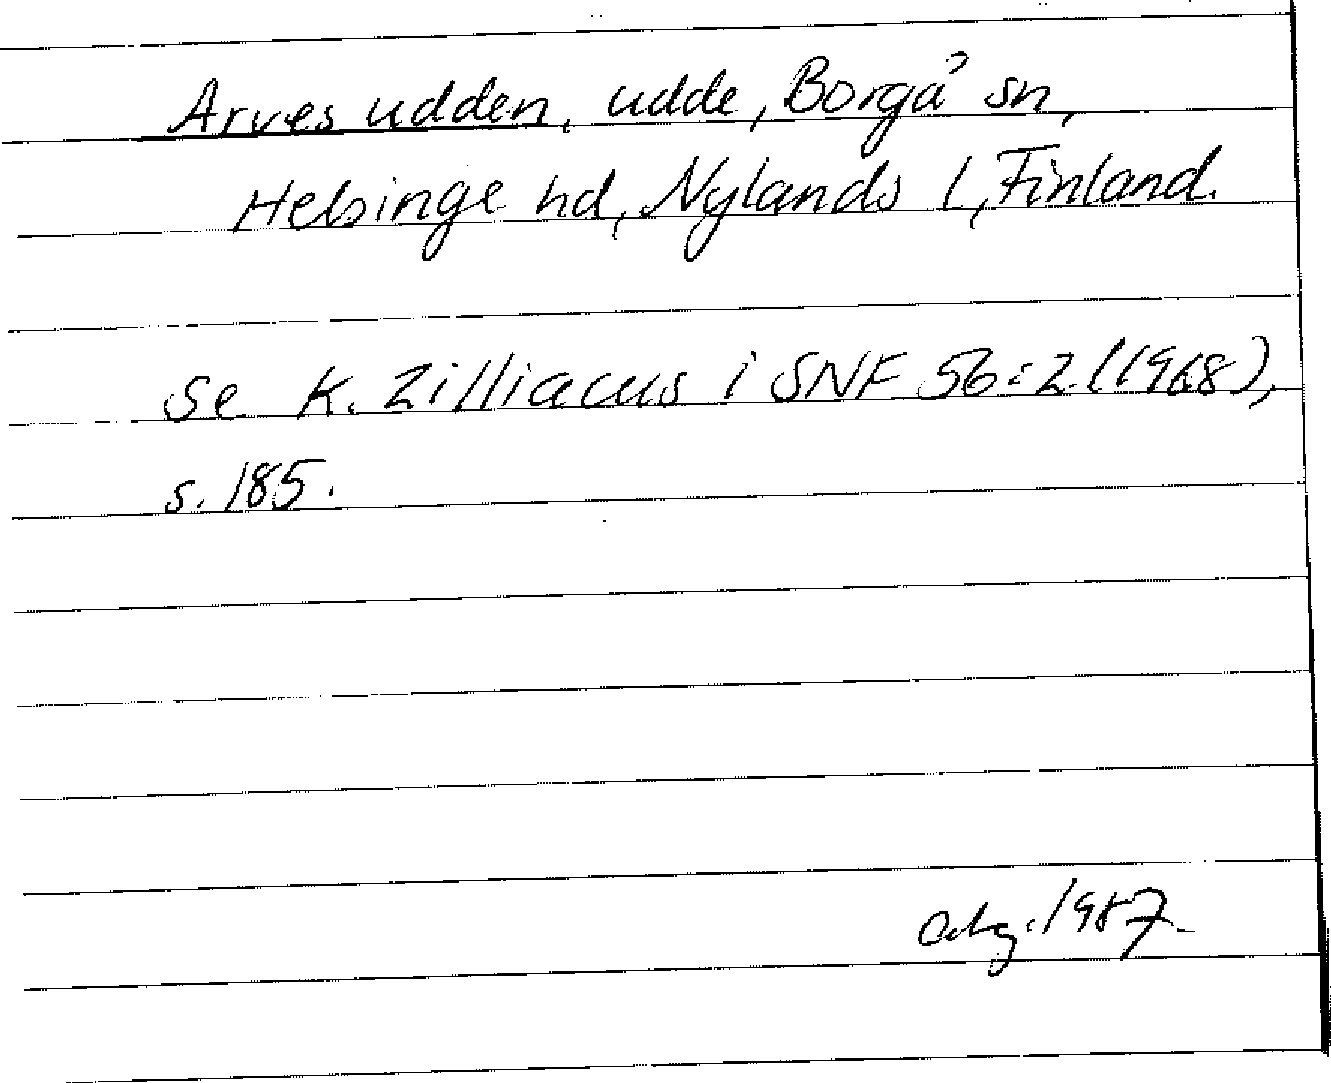 Arves udden, udde, Borgå sn,
Helsinge hd, Nylands l, Finland.
Se K. Zilliacus i SNF 56:2 (1968),
s. 185.
1987